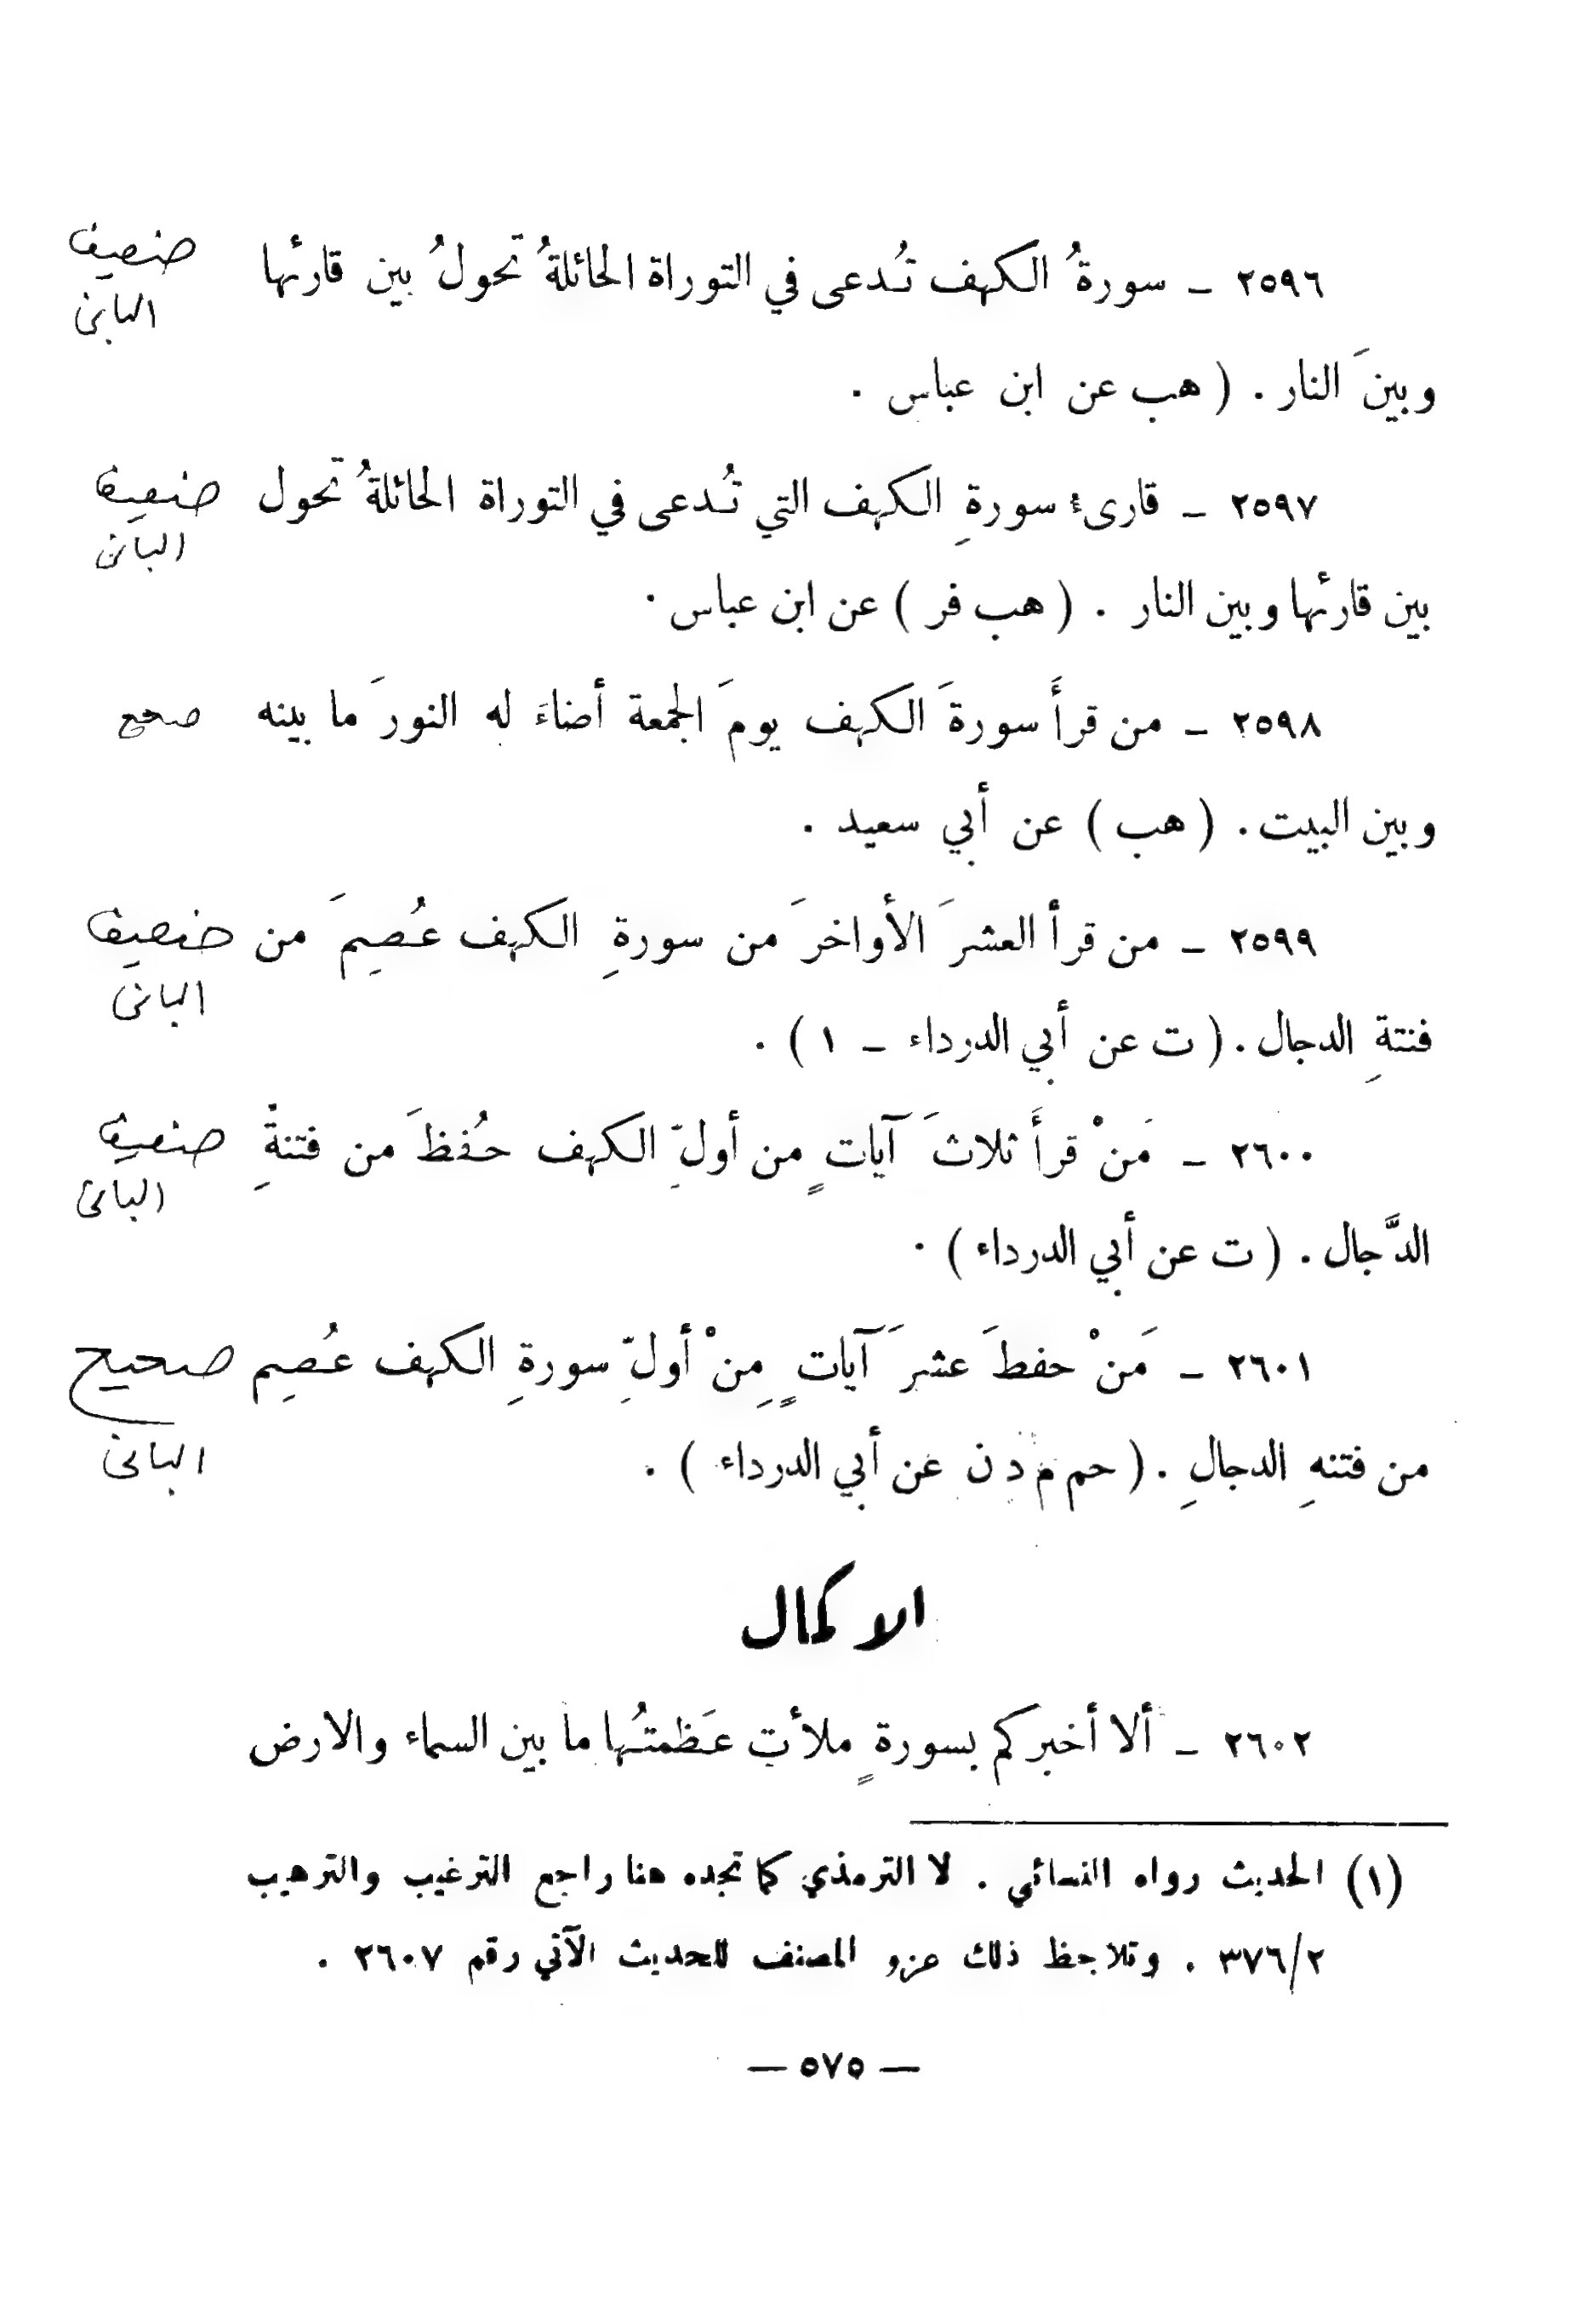 ٢٥٩٦ ـ سورةُ الكهف تُدعى في التوراة الحائلةُ تحولُ بين قارئها ضعيف
البانى
وبينَ النار . ( هب عن ابن عباس .
٢٥٩٧ ـ قارىء سورةِ الكهف التي تُدعى في التوراة الحائلةُ تحول ضعيف
البانى
بين قارئها وبين النار . ( هب فر ) عن ابن عباس .
٢٥٩٨ ـ من قرأَ سورةَ الكهف يومَ الجمعة أضاءَ له النورَ ما بينه صحيح
وبين البيت . ( هب ) عن أبي سعيد .
٢٥٩٩ ـ من قرأ العشرَ الأواخرَ من سورةِ الكهف عُصِمَ من ضعيف
البانى
فتنةِ الدجال . ( ت عن أبي الدرداء ـ ١ ) .
٢٦٠٠ ـ مَنْ قرأَ ثلاثَ آياتٍ من أولِّ الكهف حُفظَ من فتنةِ ضعيف
البانى
الدَّجال . ( ت عن أبي الدرداء ) .
٢٦٠١ ـ مَنْ حفظَ عشرَ آياتٍ مِنْ أولِّ سورةِ الكهف عُصِم صحيح
البانى
من فتنهِ الدجالِ . ( حم م د ن عن أبي الدرداء ) .
الاكمال
٢٦٠٢ ـ ألا أخبركم بسورةٍ ملأت عَظمتُها ما بين السماء والارض
(١) الحديث رواه النسائي . لا الترمذي كما تجده هنا راجع الترغيب والترهيب
٣٧٦/٢ . وتلاحظ ذلك عزو المصنف للحديث الآتي رقم ٢٦٠٧ .
— ٥٧٥ —